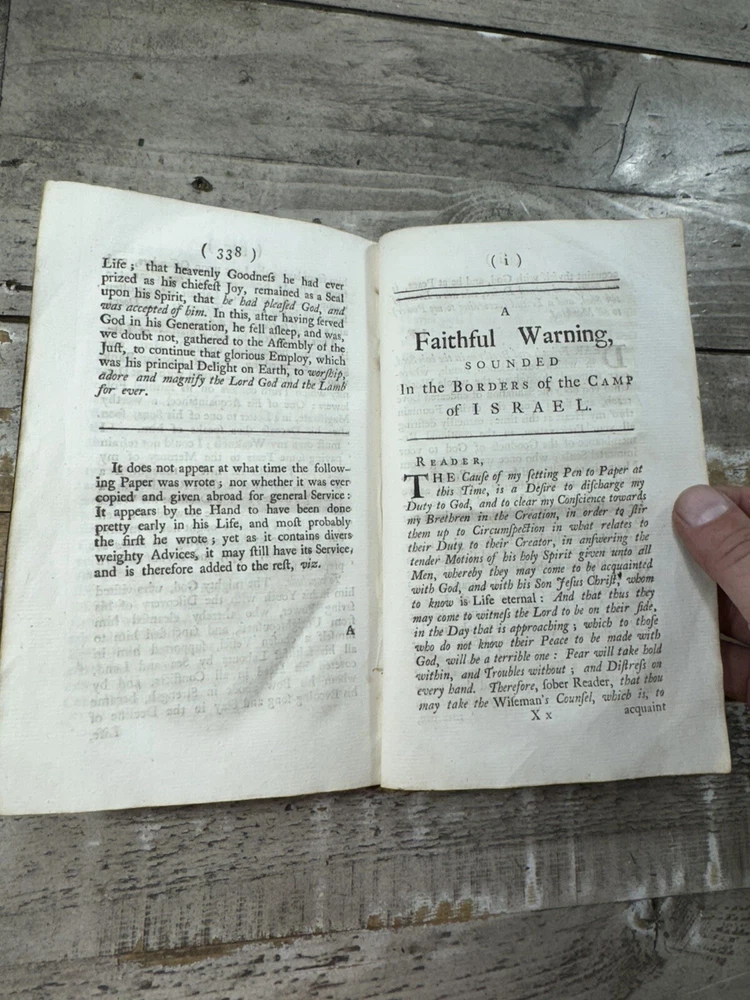 ( 338 )
Life ; that heavenly Goodneſs he had ever
prized as his chiefeſt Joy, remained as a Seal
upon his Spirit, that he had pleaſed God, and
was accepted of him. In this, after having ſerved
God in his Generation, he fell aſleep, and was,
we doubt not, gathered to the Aſſembly of the
Juſt, to continue that glorious Employ, which
was his principal Delight on Earth, to worſhip,
adore and magnify the Lord God and the Lamb
for ever.
It does not appear at what time the follow-
ing Paper was wrote ; nor whether it was ever
copied and given abroad for general Service :
It appears by the Hand to have been done
pretty early in his Life, and moſt probably
the firſt he wrote ; yet as it contains divers
weighty Advices, it may ſtill have its Service,
and is therefore added to the reſt, viz.
A
( i )
A
Faithful Warning,
SOUNDED
In the BORDERS of the CAMP
of ISRAEL.
READER,
THE Cauſe of my ſetting Pen to Paper at
this Time, is a Deſire to diſcharge my
Duty to God, and to clear my Conſcience towards
my Brethren in the Creation, in order to ſtir
them up to Circumſpection in what relates to
their Duty to their Creator, in anſwering the
tender Motions of his holy Spirit given unto all
Men, whereby they may come to be acquainted
with God, and with his Son Jeſus Chriſt, whom
to know is Life eternal : And that thus they
may come to witneſs the Lord to be on their ſide,
in the Day that is approaching ; which to thoſe
who do not know their Peace to be made with
God, will be a terrible one : Fear will take hold
within, and Troubles without ; and Diſtreſs on
every hand. Therefore, ſober Reader, that thou
may take the Wiſeman's Counſel, which is, to
X x
acquaint